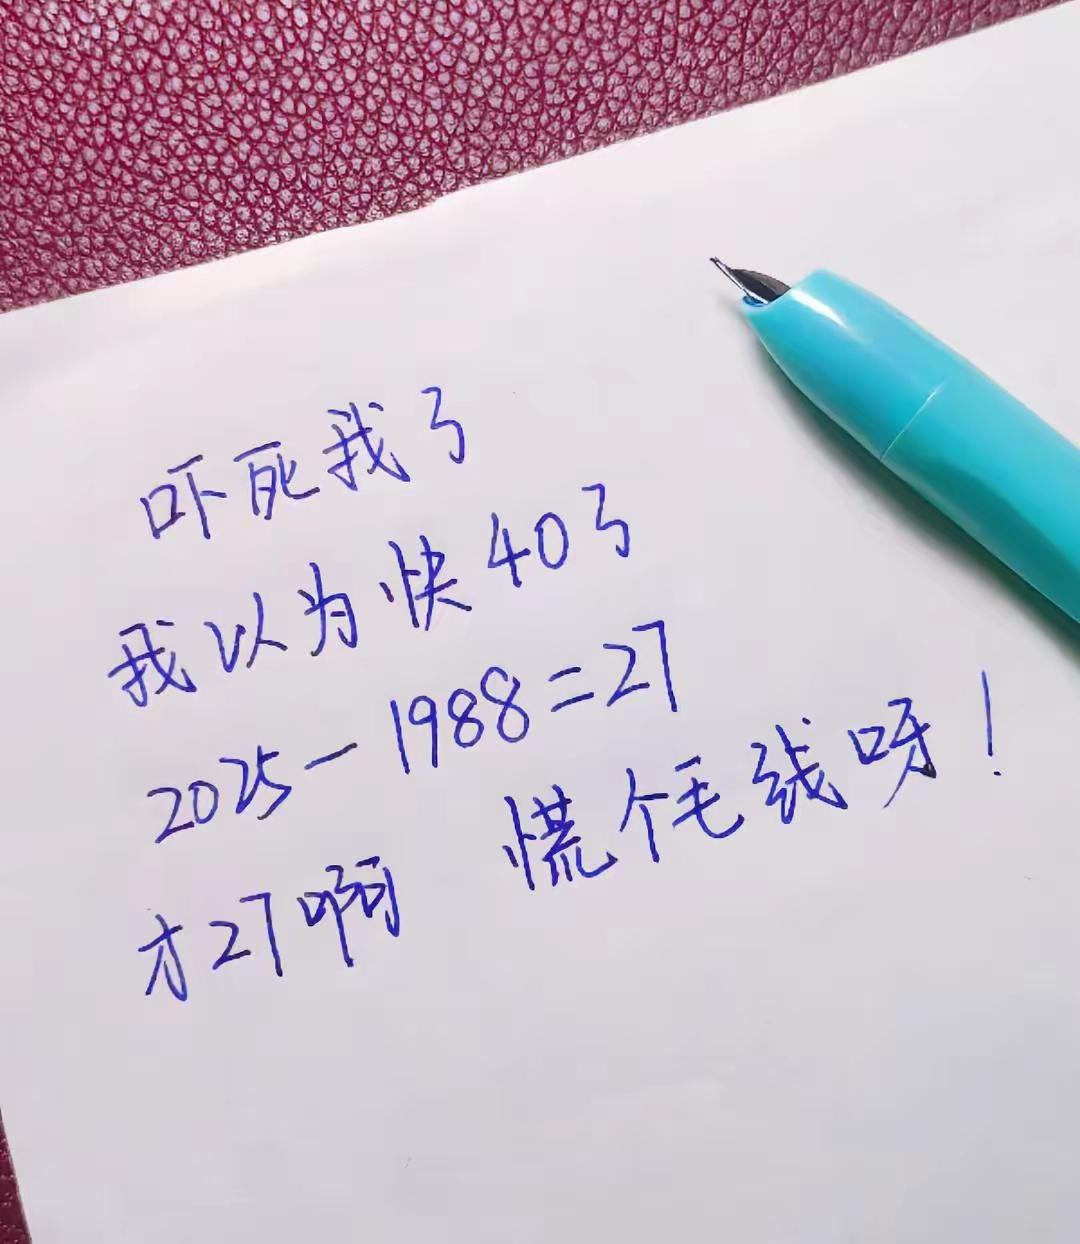 吓死我了
我以为快40了
2025-1988=27
才27啊 慌个毛线呀！